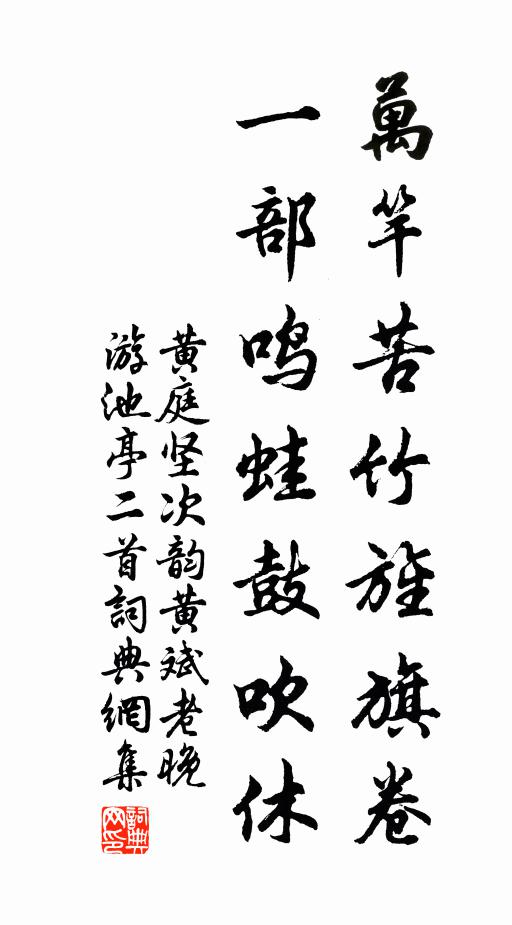 萬竿苦竹旌旗卷
一部鸣蛙鼓吹休
黄庭坚次韵黄斌老晚
游池亭二首詞典網集
詞典
网印